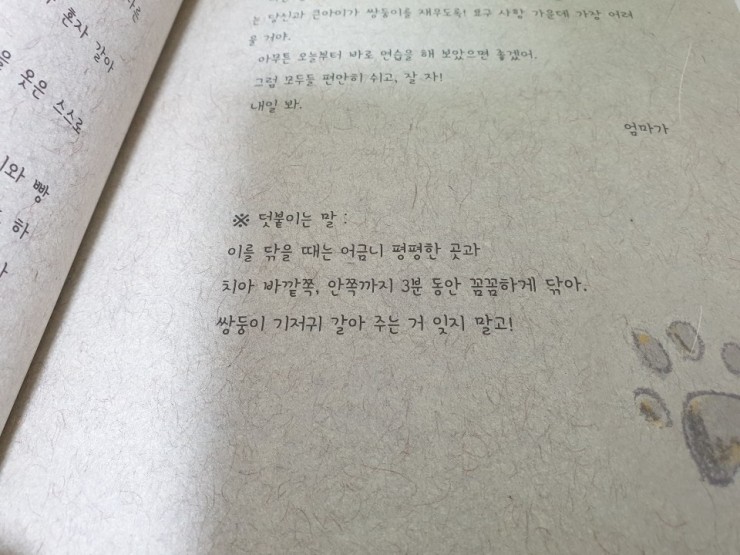 혼자 갈아
옷은 스스로
와 빵
하
는 당신과 큰아이가 쌍둥이를 재우도록! 요구 사항 가운데 가장 어려
울 거야.
아무튼 오늘부터 바로 연습을 해 보았으면 좋겠어.
그럼 모두들 편안히 쉬고, 잘 자!
내일 봐.
엄마가
※ 덧붙이는 말 :
이를 닦을 때는 어금니 평평한 곳과
치아 바깥쪽, 안쪽까지 3분 동안 꼼꼼하게 닦아.
쌍둥이 기저귀 갈아 주는 거 잊지 말고!